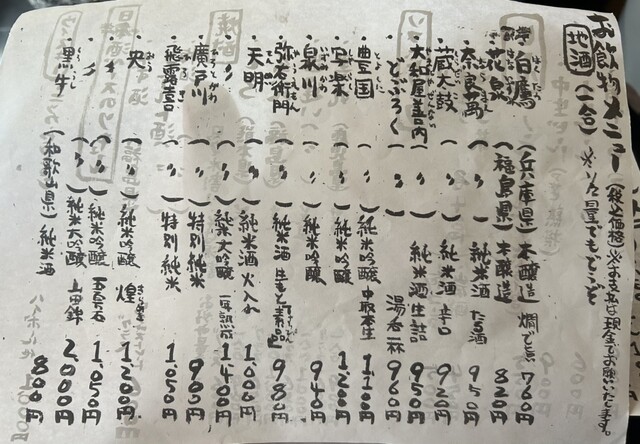 お飲物メニュー（税込価格）※お支払は現金でお願いいたします。
地酒（一合）
・白鷹（兵庫県）本醸造 燗で is 760円
・花泉（福島県）本醸造 820円
・奈良萬（〃）純米酒 たる酒 950円
・蔵太鼓（〃）純米酒 辛口 920円
・大和屋善内（〃）純米生詰 950円
・どぶろく（〃）湯呑一杯 960円
・豊国（〃）純米吟醸 中取本生 1,100円
・写楽（〃）純米吟醸 1,200円
・泉川（〃）純米吟醸 940円
・弥右衛門（〃）純米酒 980円
・天明（〃）純米酒 火入れ 1,000円
・〃（〃）純米大吟醸 1,400円
・廣戸川（〃）特別純米 900円
・飛露喜（〃）特別純米 1,050円
・央（〃）純米吟醸 煌 1,300円
・〃（〃）純米吟醸 五百万石 1,050円
・〃（〃）純米大吟醸 山田錦 2,000円
・黒牛（和歌山県）純米酒 800円